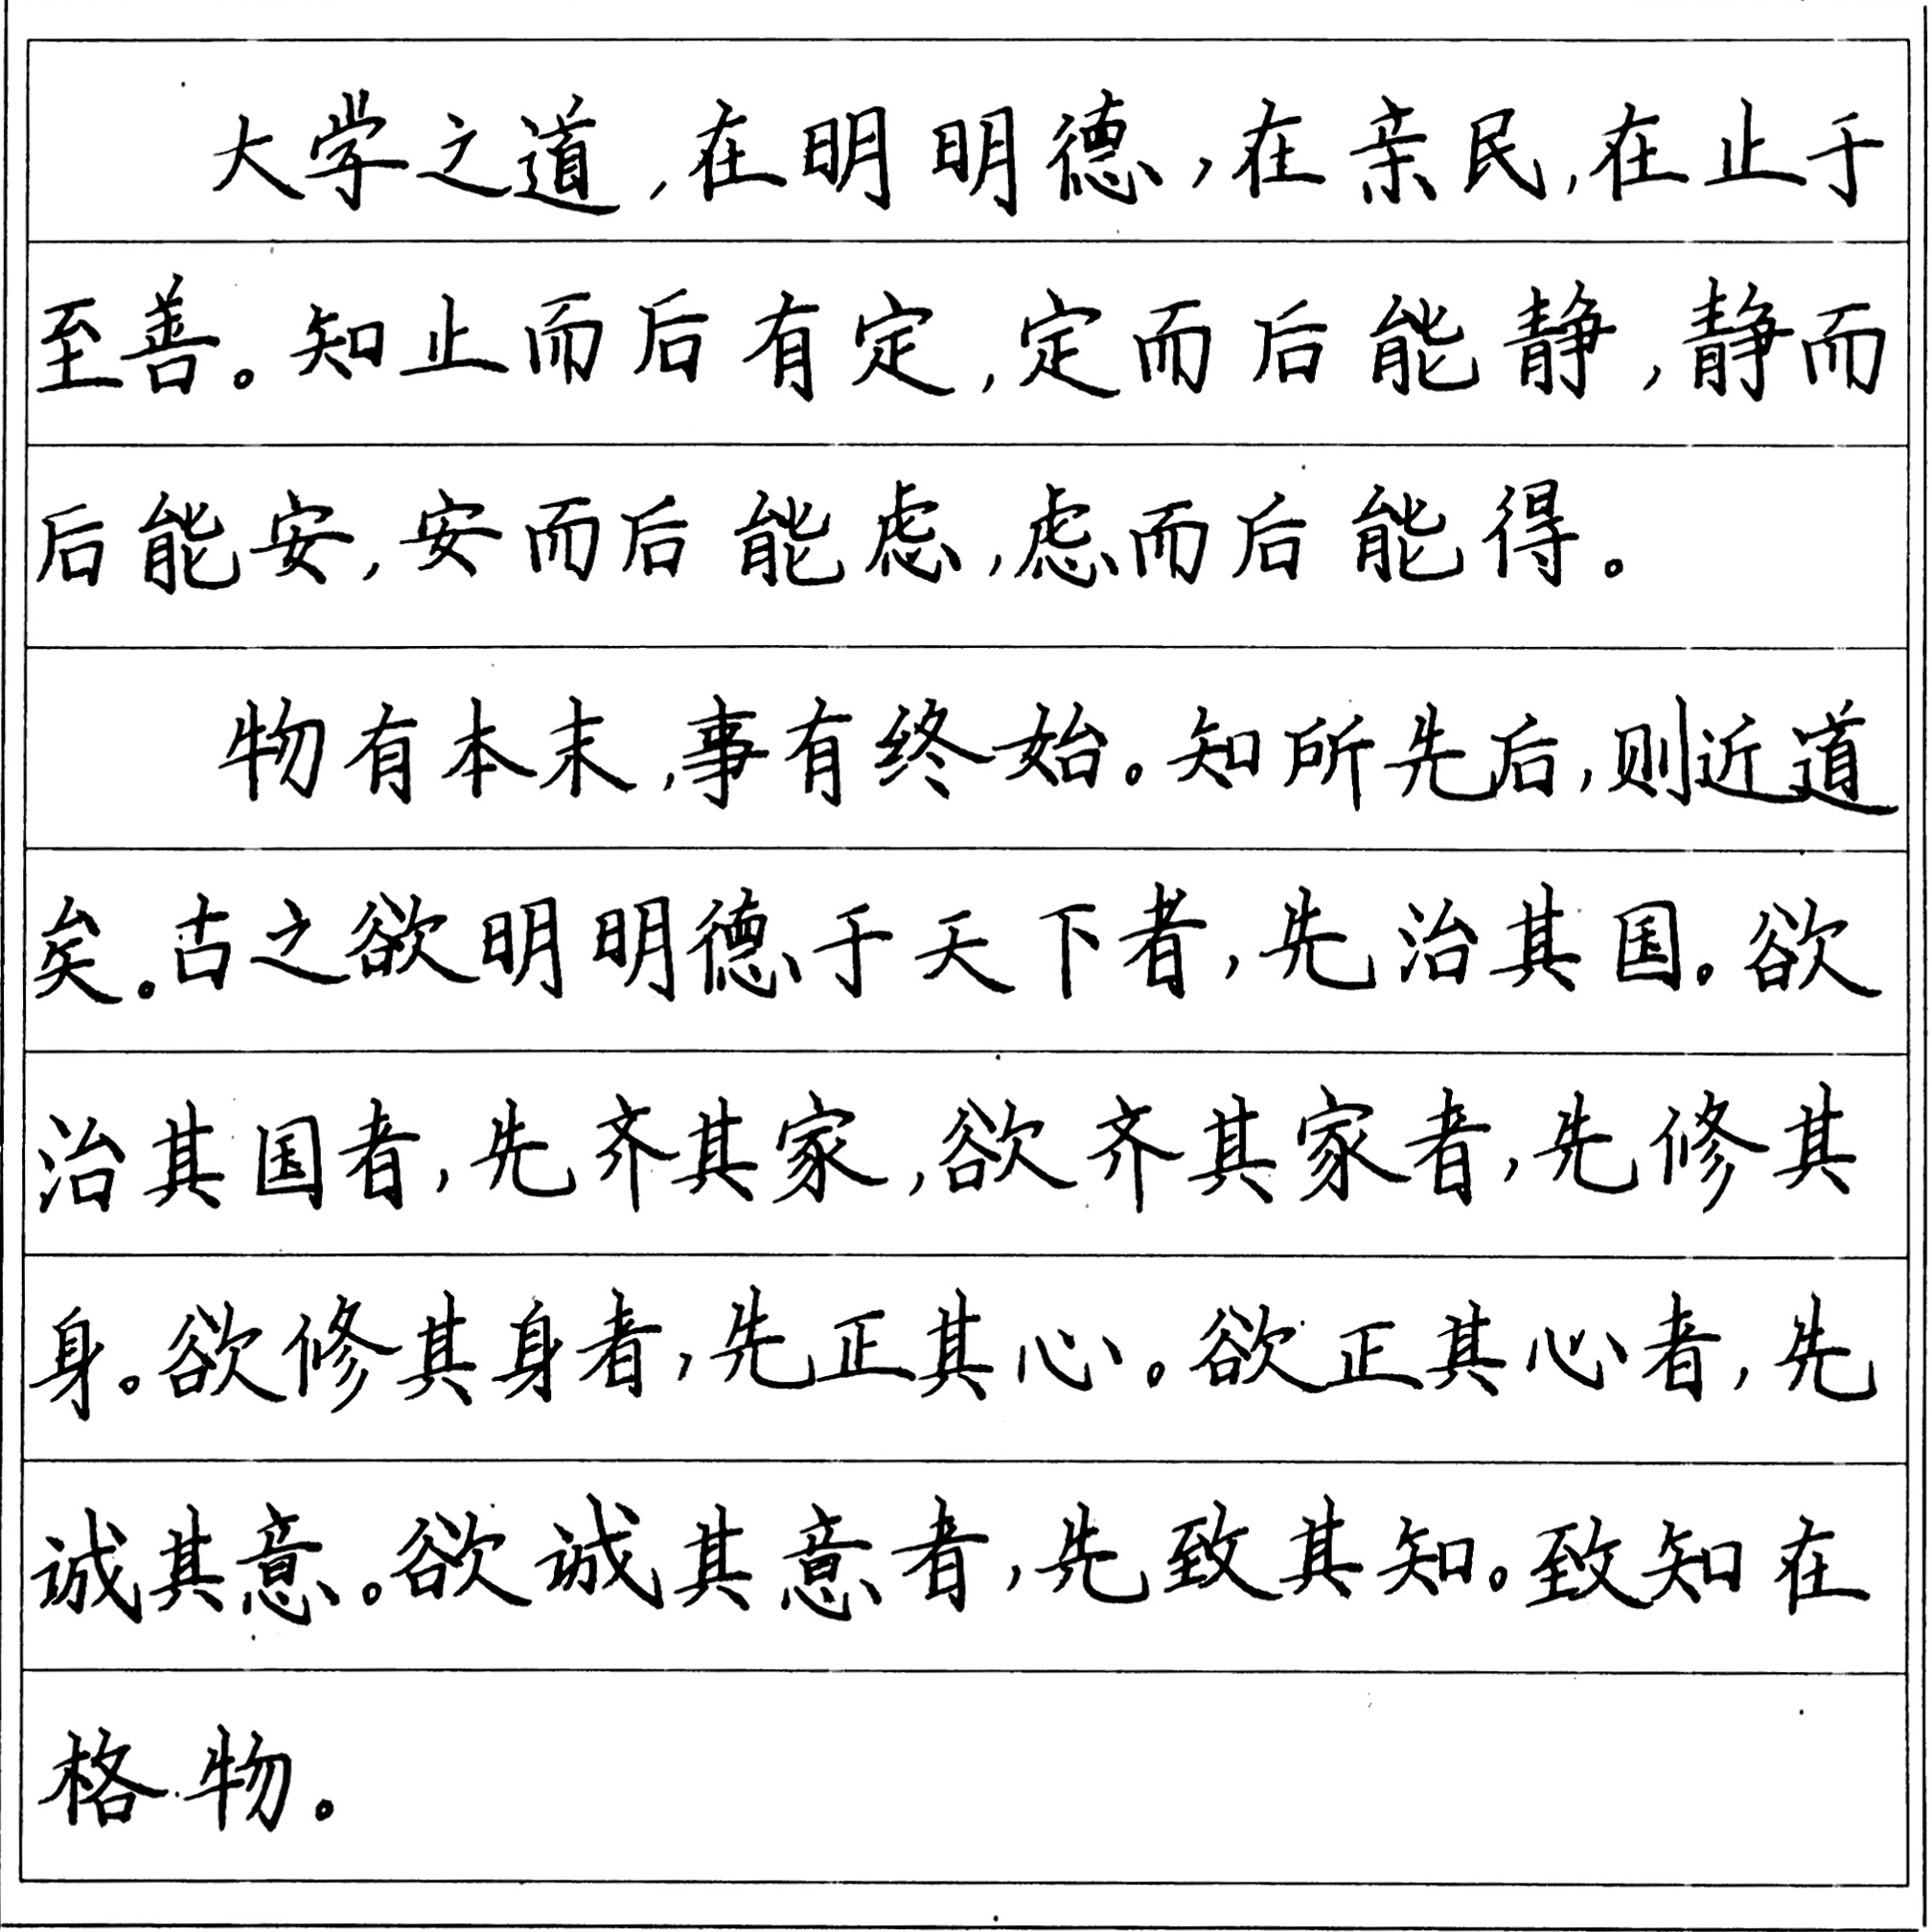 大学之道,在明明德,在亲民,在止于
至善。知止而后有定,定而后能静,静而
后能安,安而后能虑,虑而后能得。
物有本末,事有终始。知所先后,则近道
矣。古之欲明明德于天下者,先治其国。欲
治其国者,先齐其家,欲齐其家者,先修其
身。欲修其身者,先正其心。欲正其心者,先
诚其意。欲诚其意者,先致其知。致知在
格物。